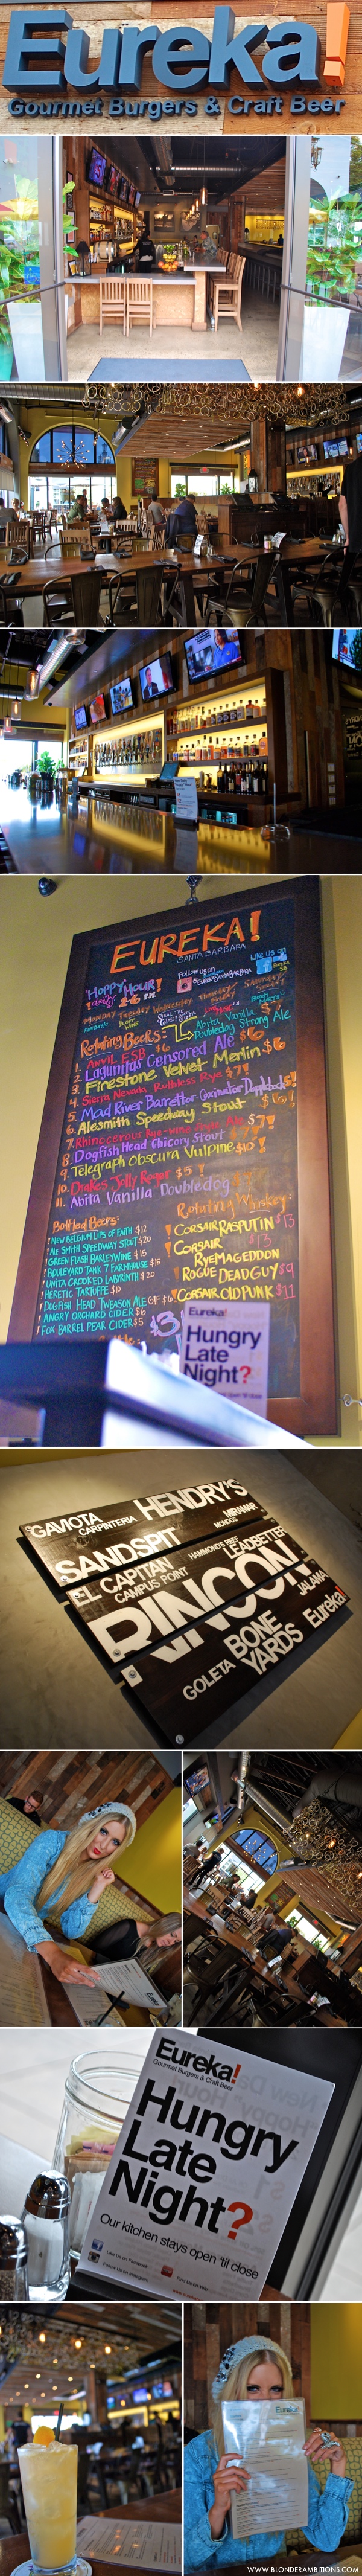 Eureka!
Gourmet Burgers & Craft Beer
EUREKA!
SANTA BARBARA
HOPPY HOUR!
Follow us on
LIKE US ON
MONDAY TUESDAY WEDNESDAY THURSDAY
Rotating Beers
1. ANVIL ESB $6
2. Lagunitas Censored Ale $6
3. Firestone Velvet Merlin $6
4. Sierra Nevada Ruthless Rye $7!
5. Mad River Barrettor
6. Alesmith Speedway Stout
7. Rhinocerous
8. Dogfish Head Chicory Stout
9. Telegraph Obscura Vulpine $10
10. Drakes Jolly Roger $5!
11. Abita Vanilla Doubledog
Abita Vanilla
Doubledog Strong Ale
Bottled Beers:
! NEW BELGIUM LIPS OF FAITH $12
! ALE SMITH SPEEDWAY STOUT $20
! GREEN FLASH BARLEYWINE $15
! BOULEVARD TANK 7 FARMHOUSE $15
! UNITA CROOKED LABYRINTH $20
! HERETIC TARTUFFE $10
! DOGFISH HEAD TWEASON ALE GF $6
! ANGRY ORCHARD CIDER $6
! FOX BARREL PEAR CIDER $5
Rotating Whiskey:
! CORSAIR RASPUTIN $13
! CORSAIR RYEMAGEDDON $13
! ROGUE DEAD GUY $9
! CORSAIR OLD PUNK $11
$3
Eureka!
Hungry
Late
Night?
GAVIOTA
CARPINTERIA
HENDRY'S
MIRAMAR
SANDSPIT
MONDOS
EL CAPITAN
HAMMOND'S REEF
LEADBETTER
CAMPUS POINT
RINCON
JALAMA
GOLETA
BONE
YARDS
Eureka!
Eureka!
Gourmet Burgers & Craft Beer
Hungry
Late
Night?
Our kitchen stays open 'til close
Like Us on Facebook
Follow Us on Instagram
Find Us on Yelp
Eureka!
WWW.BLONDERAMBITIONS.COM